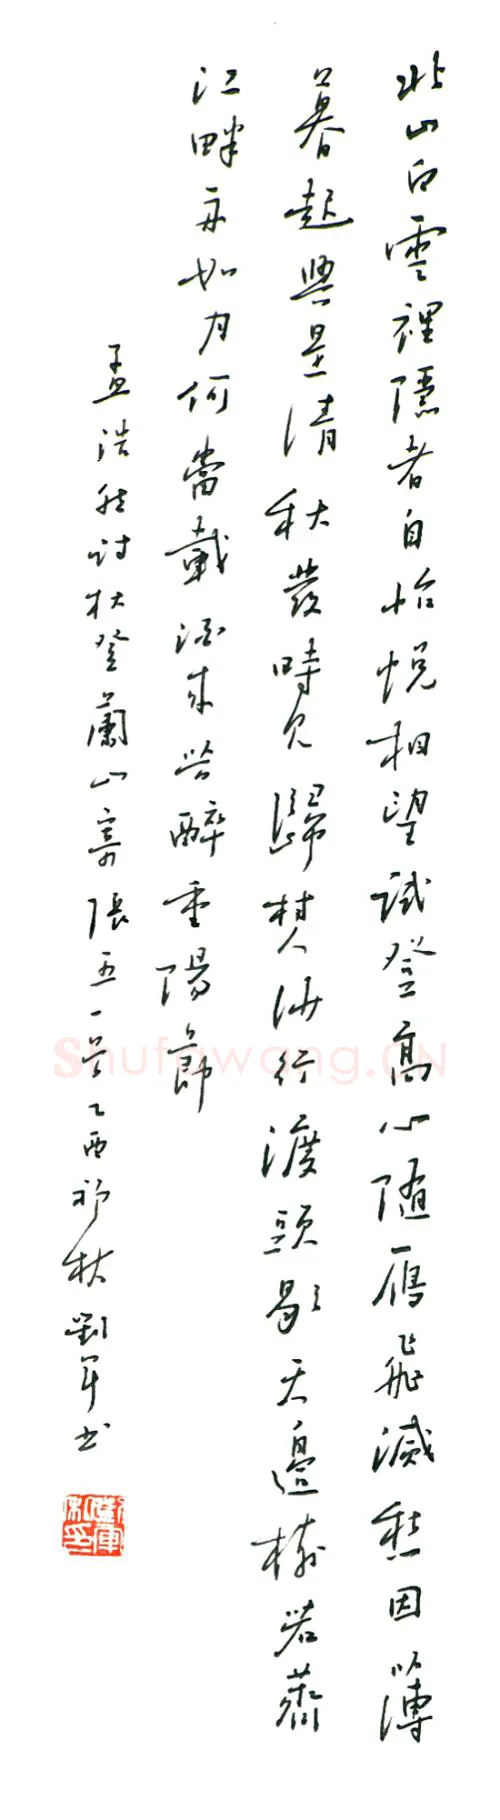 北山白雲裡隱者自怡悅相望試登高心隨雁飛滅愁因薄
暮起興是清秋發時見歸村人沙行渡頭歇天邊樹若薺
江畔舟如月何當載酒來共醉重陽節
孟浩然詩秋登蘭山寄張五一首乙酉初秋劉軍書
劉軍私印
Shufawang.CN